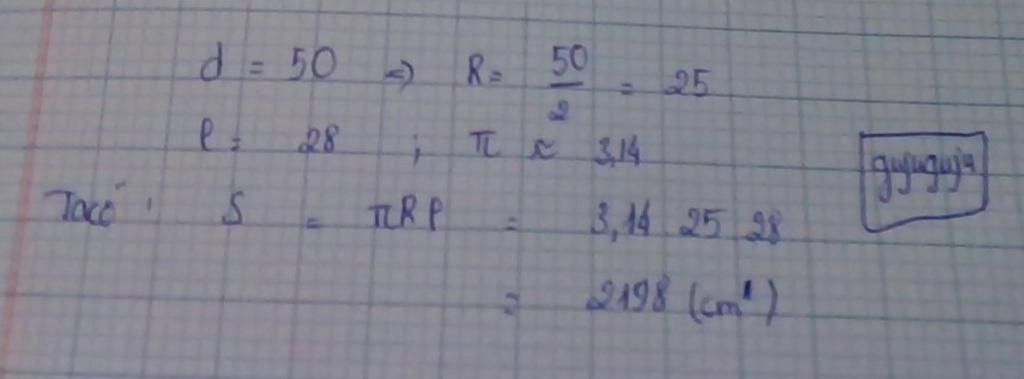 d = 50 => R = 50/2 = 25
l = 28 ; π ≈ 3,14
Ta có : S = πRl = 3,14 25 28
= 2198 (cm²)
gujuguju